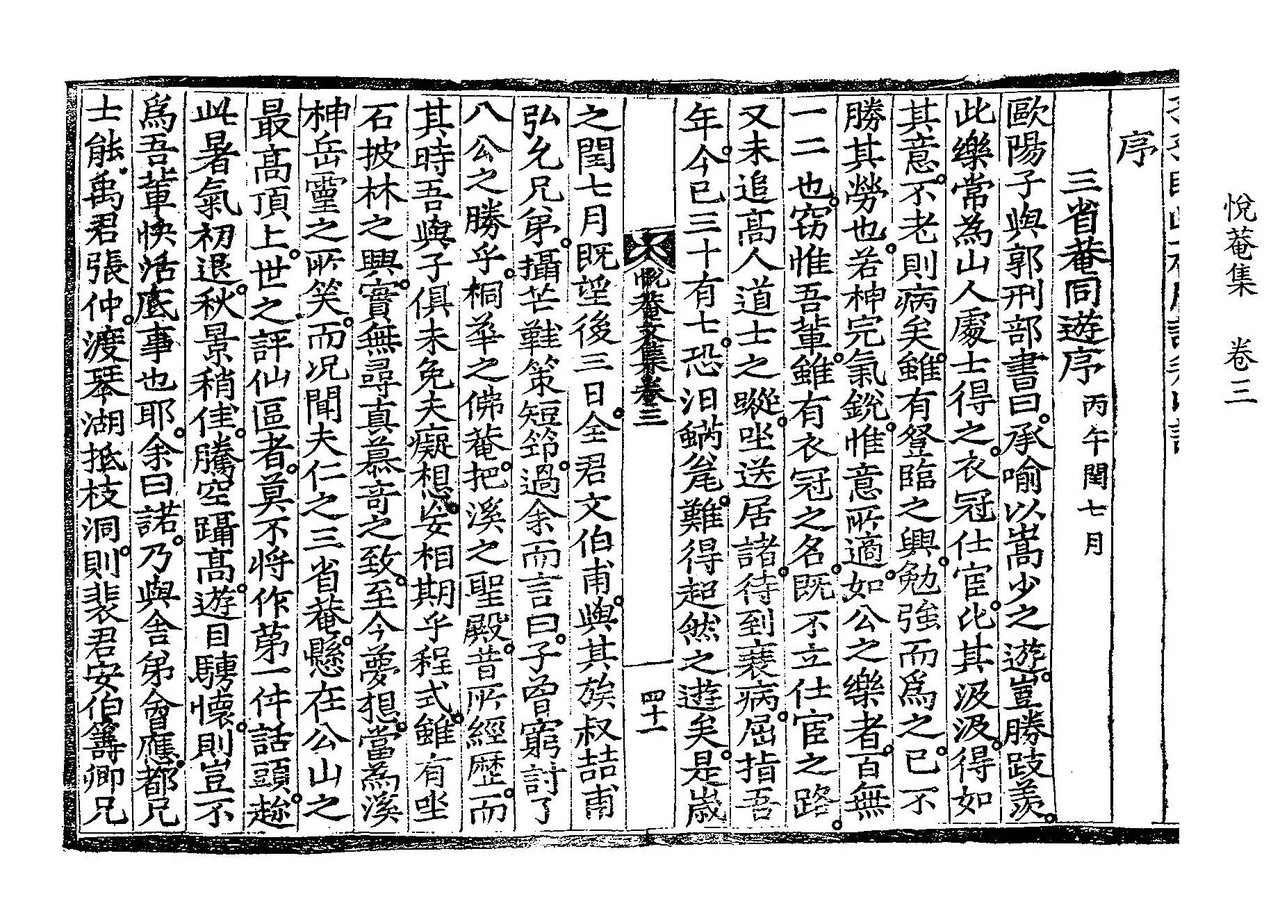 悅菴集 卷三
序
三省菴同遊序 丙午閏七月
歐陽子與郭刑部書曰承喩以嵩少之遊豈勝跂羨
此樂常為山人處士得之衣冠仕宦比其汲汲得如
其意不老則病矣雖有登臨之興勉強而爲之已不
勝其勞也若神完氣銳惟意所適如公之樂者百無
一二也窃惟吾輩雖有衣冠之名既不立仕宦之路
又未追高人道士之蹤坐送居諸待到衰病屈指吾
年今已三十有七恐汨蝸瓮難得超然之遊矣是歲
悅菴文集卷三
四十一
之閏七月既望後三日全君文伯甫與其族叔喆甫
弘允兄弟攝芒鞋策短筇過余而言曰子曾窮討了
八公之勝乎桐華之佛菴把溪之聖殿昔所經歷而
其時吾與子俱未免夫癡想妄相期乎程式雖有坐
石披林之興實無尋真慕奇之致至今夢想當為溪
神岳靈之所笑而况聞夫仁之三省菴懸在公山之
最高頂上世之評仙區者莫不將作第一件話頭趁
此暑氣初退秋景稍佳騰空躡高遊目騁懷則豈不
爲吾輩快活底事也耶余曰諾乃與舍弟會應都兄
士能禹君張仲渡琴湖抵枝洞則裴君安伯籌卿兄